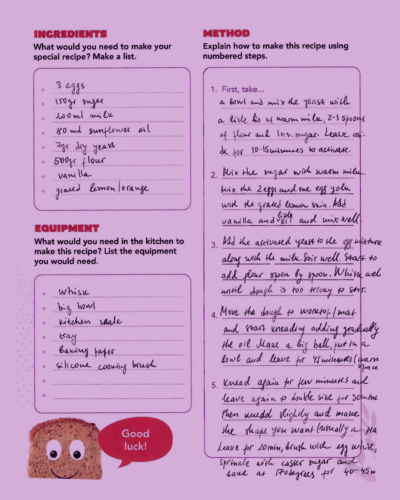 INGREDIENTS
What would you need to make your
special recipe? Make a list.
3 eggs
150gr sugar
200ml milk
80 ml sunflower oil
7gr dry yeast
500gr flour
vanilla
grated lemon/orange
EQUIPMENT
What would you need in the kitchen to
make this recipe? List the equipment
you would need.
whisk
big bowl
kitchen scale
tray
baking paper
silicone cooking brush
Good
luck!
METHOD
Explain how to make this recipe using
numbered steps.
1. First, take...
a bowl and mix the yeast with
a little bit of warm milk, 2-3 spoons
of flour and 1 ts. sugar. Leave
for 10-15 minutes to activate.
2. Mix the sugar with warm milk
Mix the 2 eggs and one egg yolk
with the grated lemon skin. Add
vanilla and oil and mix well
3. Add the activated yeast to the egg mixture
along with the milk. Stir well. Start to
add flour spoon by spoon. Whisk well
until dough is too tricky to stir.
4. Move the dough to worktop/mat
and start kneading adding gradually
the oil. Make a big ball, put in a
bowl and leave for 45 minutes (warm
place
5. Knead again for few minutes and
leave again to double size for 30 mins
Then knedd slightly and make
the shape you want (usually a
Leave for 20 min, brush with egg white,
sprinkle with caster sugar and
bake at 170 degrees for 40-45 m